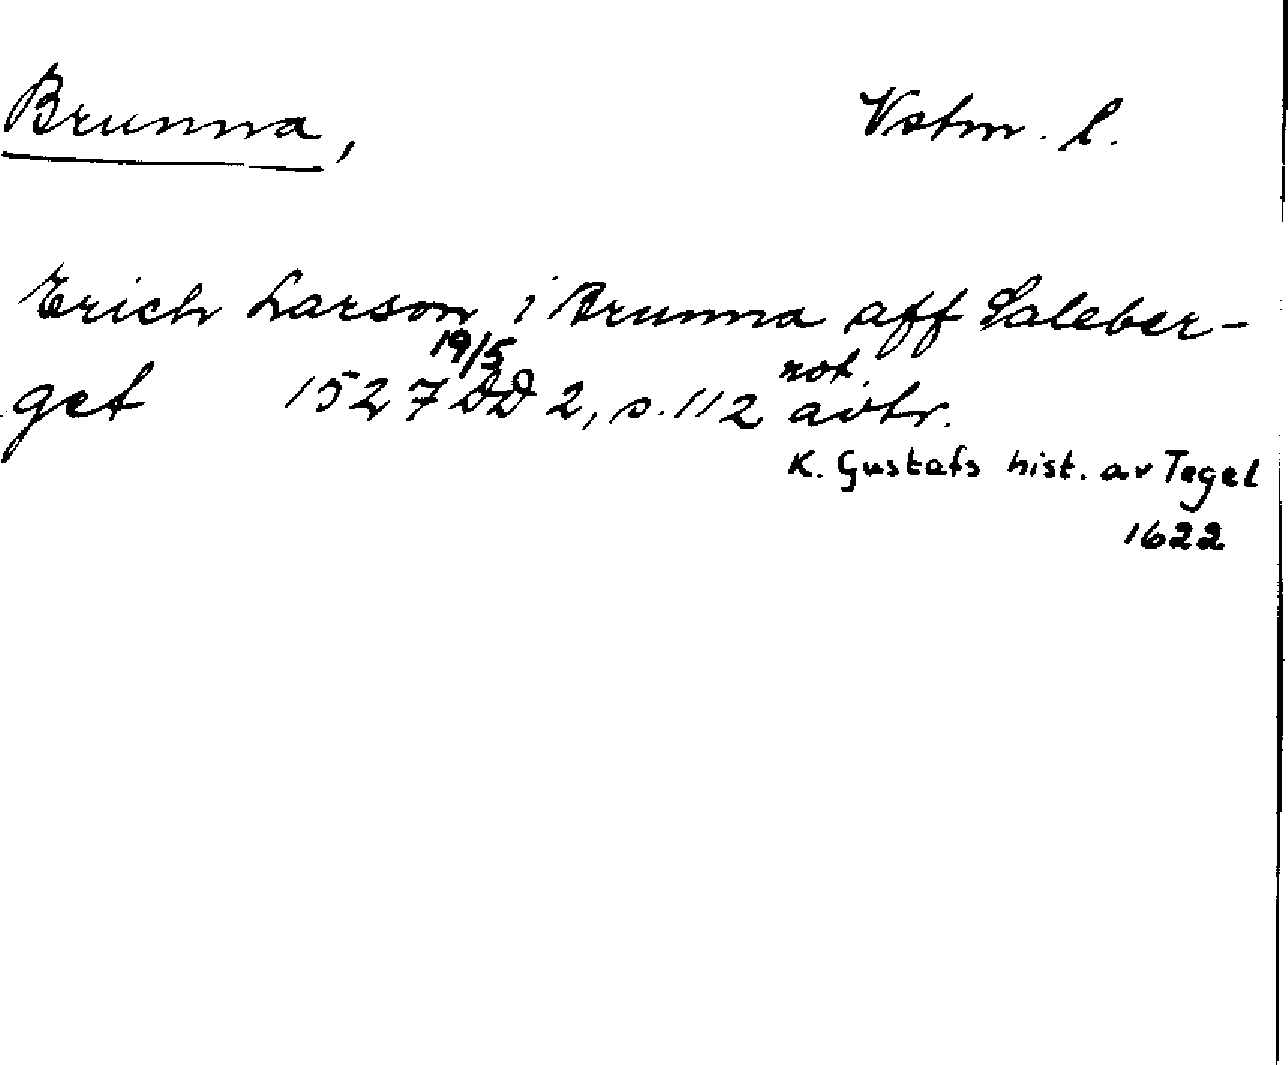 Brunna, Vstm. l.
Erich Larson i Brunna aff Saleber-
get 1527 19/5 DD 2, s. 112 not. avtr.
K. Gustafs hist. av Tegel
1622